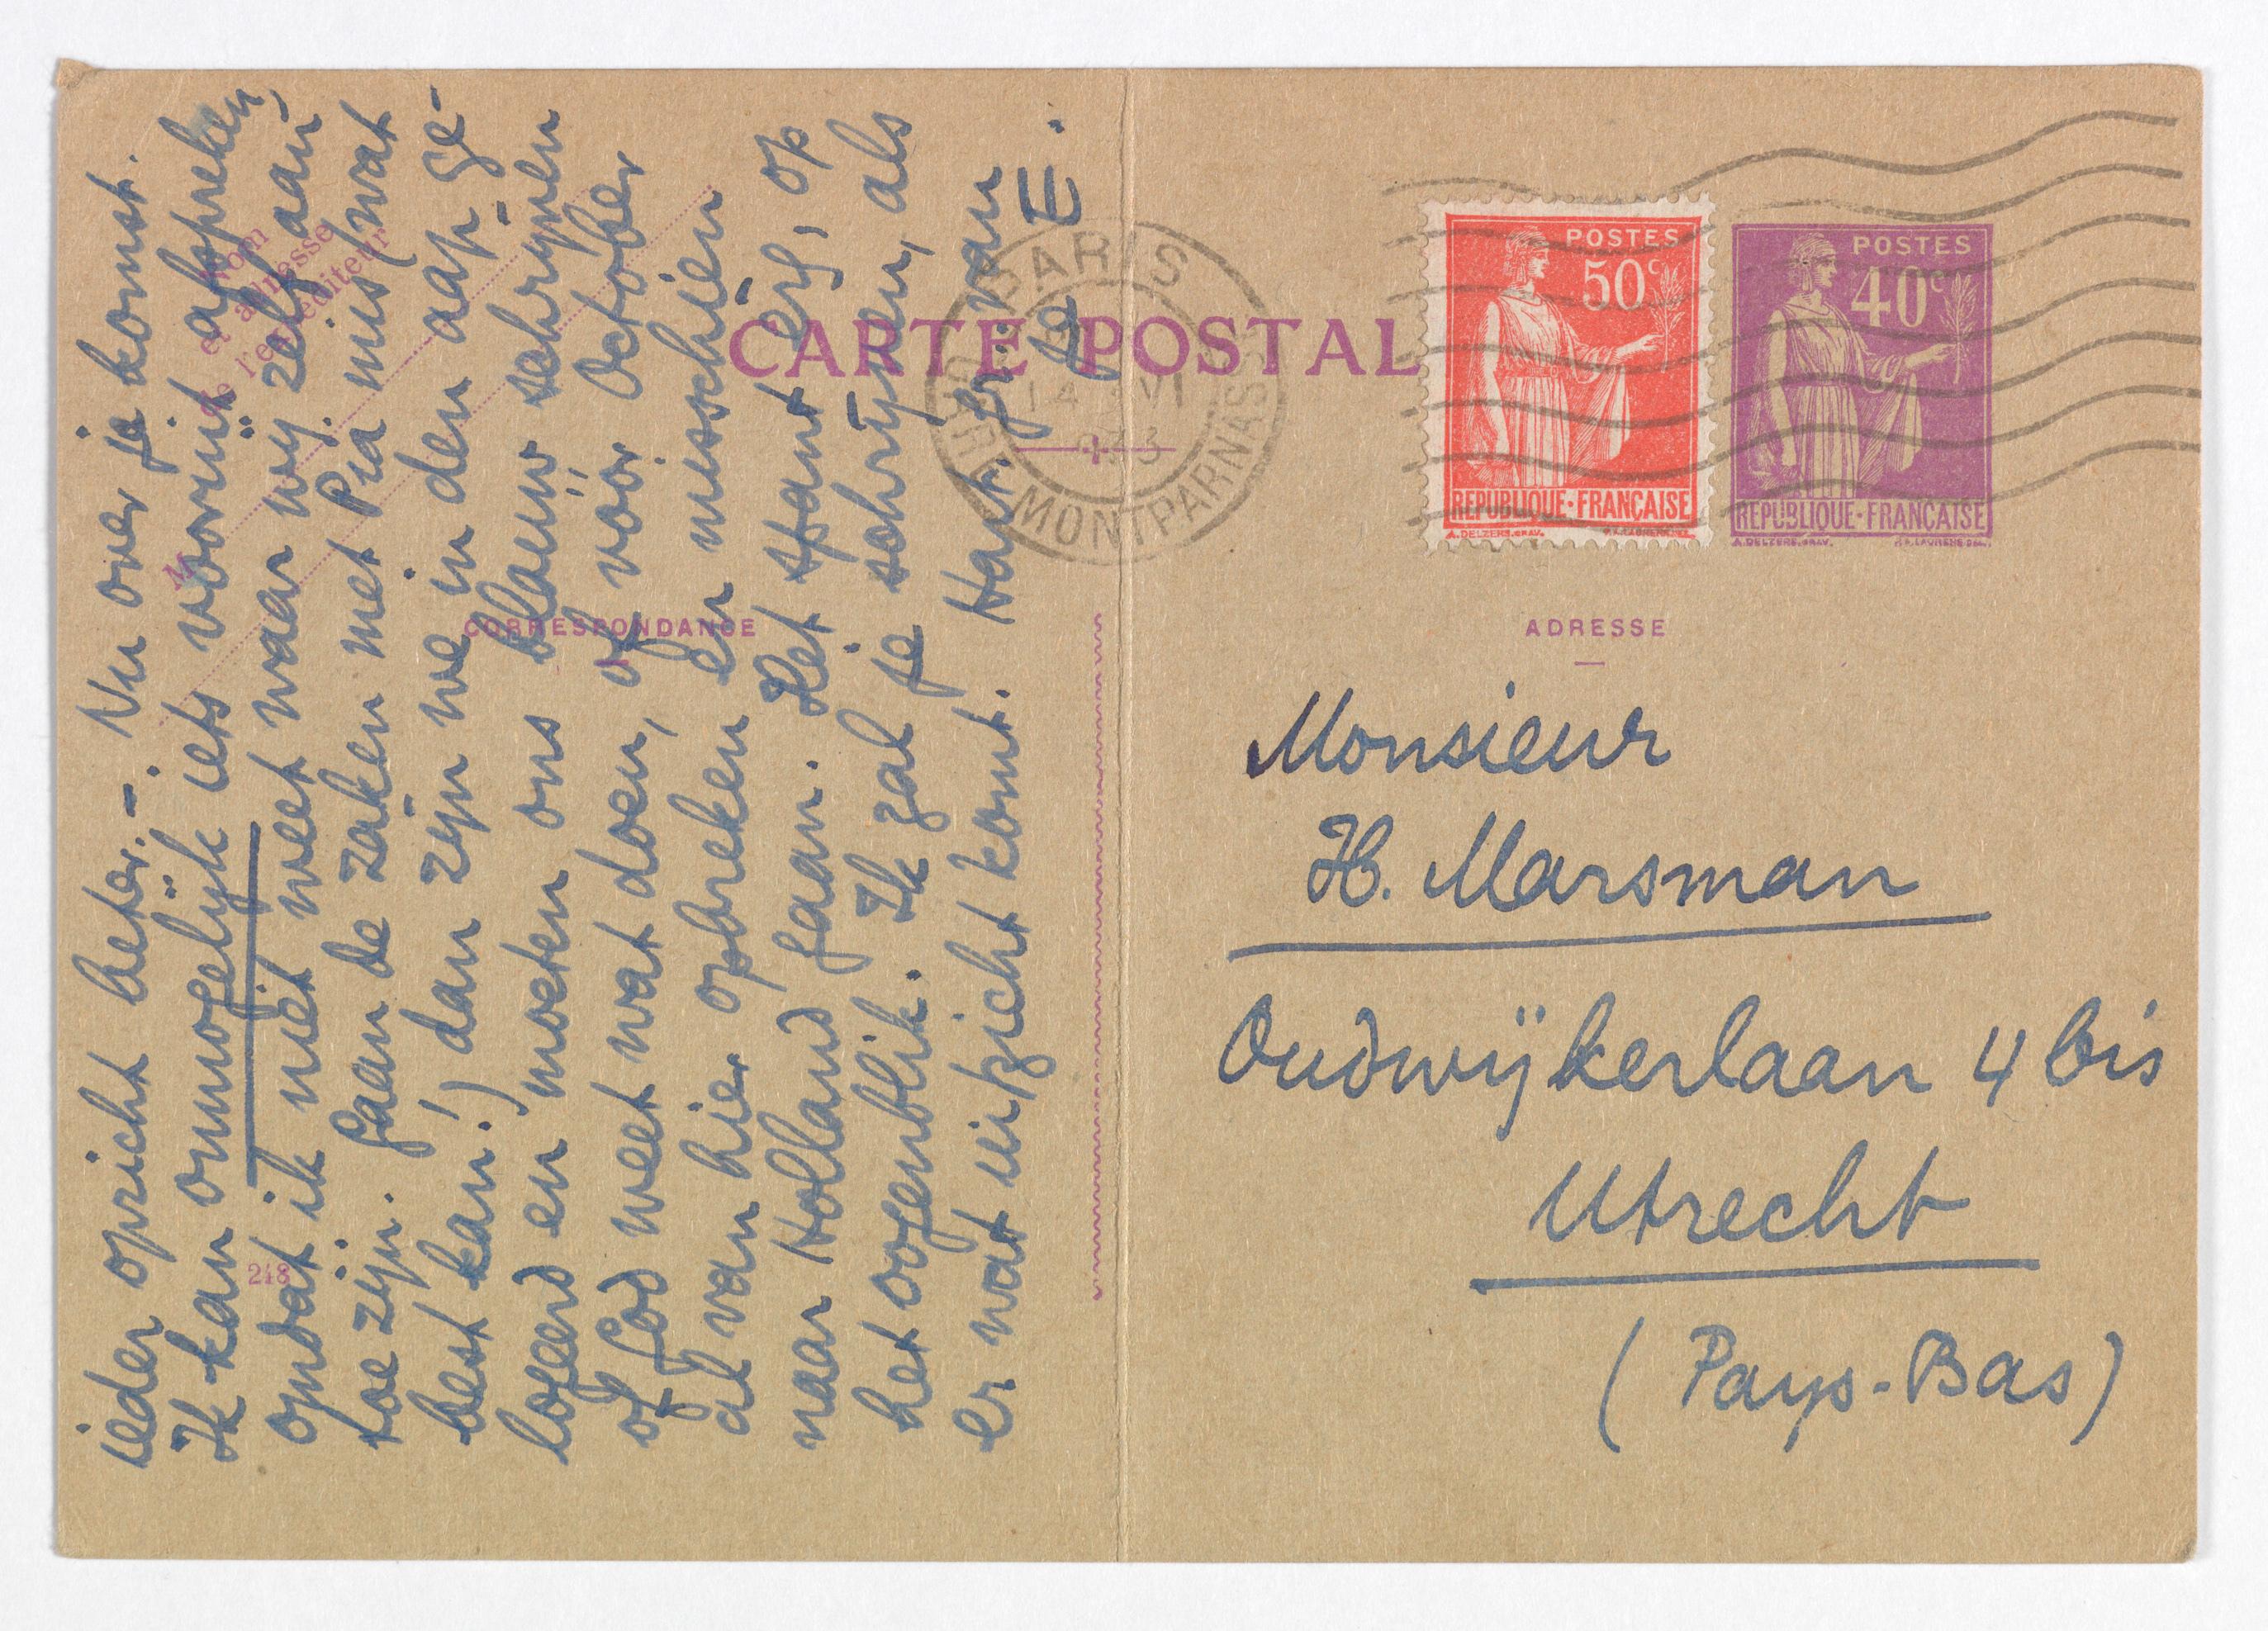 ieder opzicht beter. – Nu over je komst.
Ik kan onmogelijk iets vooruit afspreken,
omdat ik niet weet waar wij zelf aan
toe zijn. Gaan de zaken met Pia mis (wat
best kan!) dan zijn we in den aap ge-
logeerd en moeten ons blauw schrijven
of God weet wat doen, of vóór October
al van hier opbreken en misschien
naar Holland gaan. Het spant erg, op
het oogenblik. Ik zal je schrijven, als
er wat uitzicht komt. Hart. gr. van
je E.
Nom
et adresse
de l'expéditeur
M
CARTE POSTAL
CORRESPONDANCE
218
PARIS
GARE MONTPARNASSE
14 VI
POSTES
50c
REPUBLIQUE·FRANÇAISE
A.DELZERS.GRAV.
POSTES
40c
REPUBLIQUE·FRANÇAISE
A.DELZERS.GRAV. P.A.LAURENS DEL.
ADRESSE
Monsieur
H. Marsman
Oudwijkerlaan 4 bis
Utrecht
(Pays-Bas)